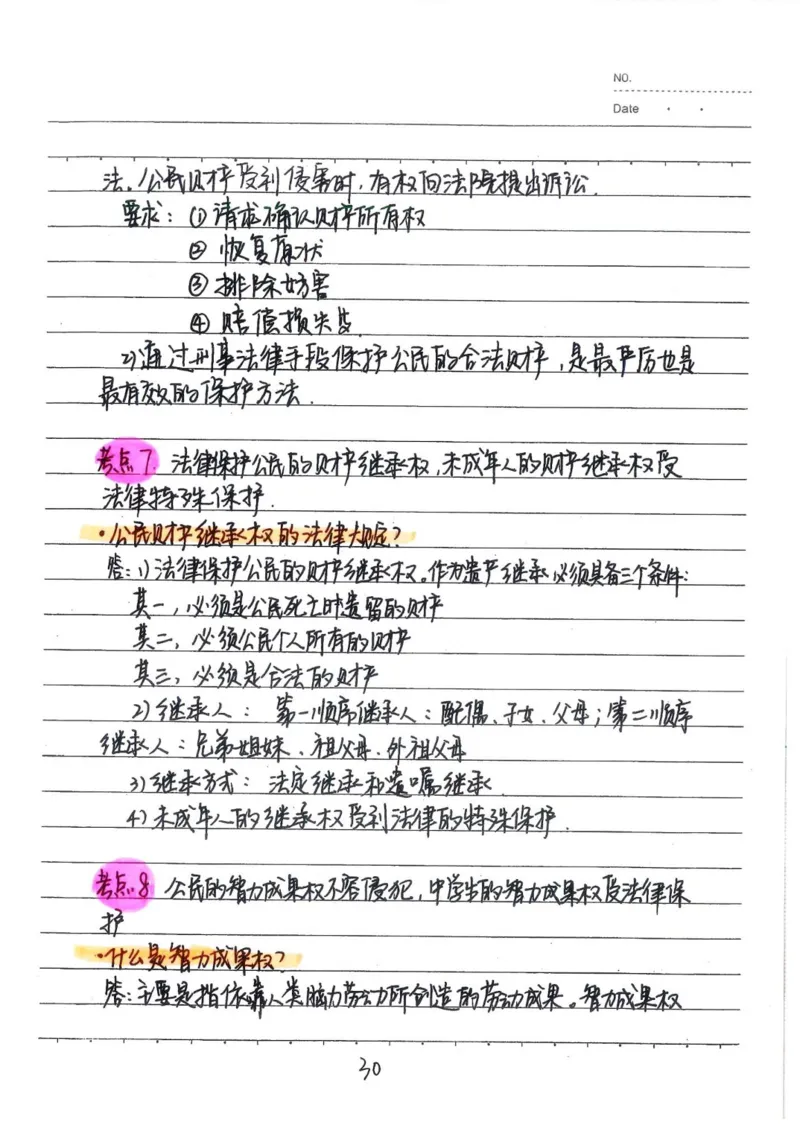 NO.
Date
法。公民财产受到侵害时,有权向法院提出诉讼.
要求:①请求确认财产所有权
②恢复原状
③排除妨害
④赔偿损失等.
2)通过刑事法律手段保护公民的合法财产,是最严厉也是
最有效的保护方法.
考点7.法律保护公民的财产继承权,未成年人的财产继承权受
法律特殊保护.
·公民财产继承权的法律规定?
答:1)法律保护公民的财产继承权。作为遗产继承必须具备三个条件:
其一,必须是公民死亡时遗留的财产
其二,必须公民个人所有的财产
其三,必须是合法的财产
2)继承人: 第一顺序继承人:配偶、子女、父母;第二顺序
继承人:兄弟姐妹、祖父母、外祖父母
3)继承方式: 法定继承和遗嘱继承.
4)未成年人的继承权受到法律的特殊保护.
考点.8 公民的智力成果权不容侵犯,中学生的智力成果权受法律保
护
·什么是智力成果权?
答:主要是指依靠人类脑力劳动所创造的劳动成果。智力成果权
30